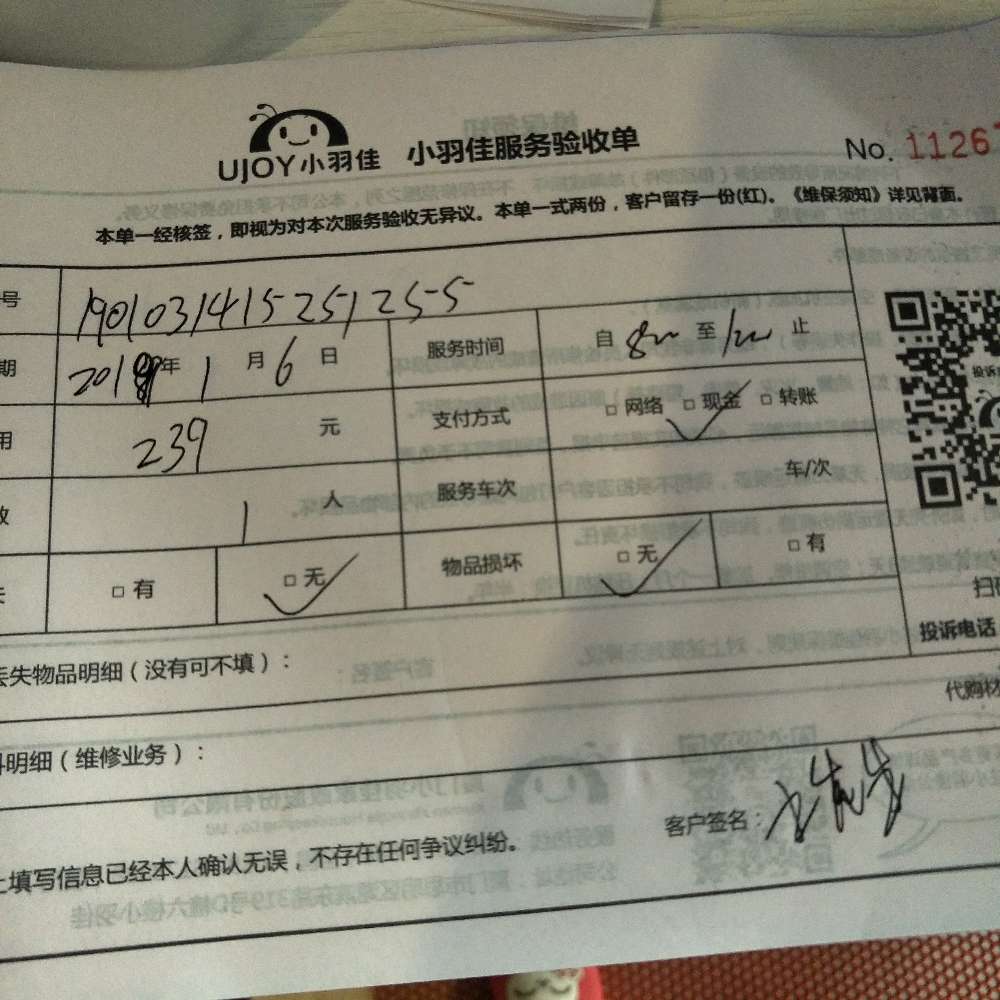 UJOY小羽佳 小羽佳服务验收单 No. 1126
本单一经核签，即视为对本次服务验收无异议。本单一式两份，客户留存一份(红)。《维保须知》详见背面。
号 19010314152512555
期 2019年 1 月 6 日 服务时间 自 8 至 12 止
用 239 元 支付方式 □ 网络 □ 现金 □ 转账
数 1 人 服务车次 车/次
失 □ 有 □ 无 物品损坏 □ 无 □ 有
投诉
扫
投诉电话
丢失物品明细（没有可不填）：
代购材
料明细（维修业务）：
客户签名：
上填写信息已经本人确认无误，不存在任何争议纠纷。